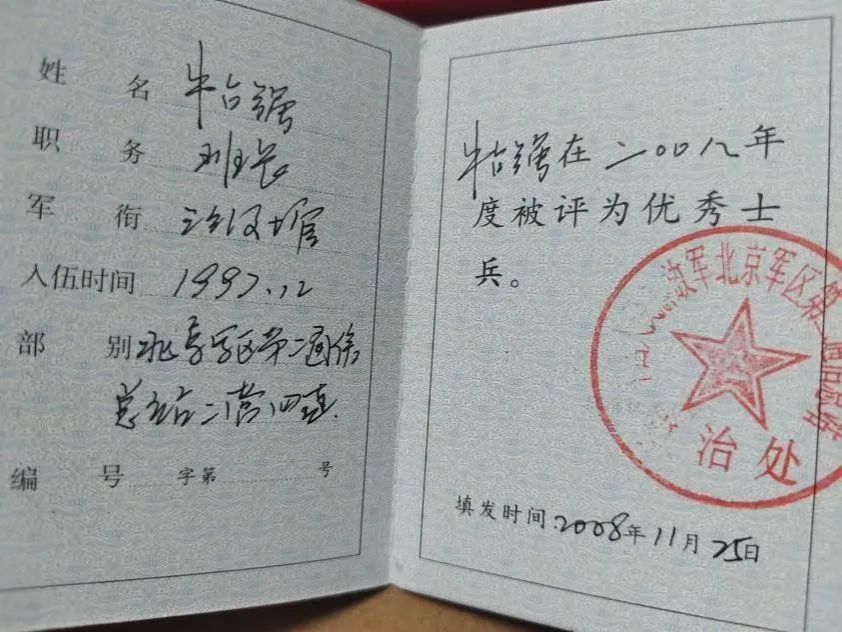 姓名 牛台强
职务 班长
军衔 三级士官
入伍时间 1997.12
部别 北京军区第二通信
总站二营四连
编号 字第 号
牛台强在二〇〇八年
度被评为优秀士
兵。
放军北京军区第二通信总站
治处
填发时间:2008年11月25日